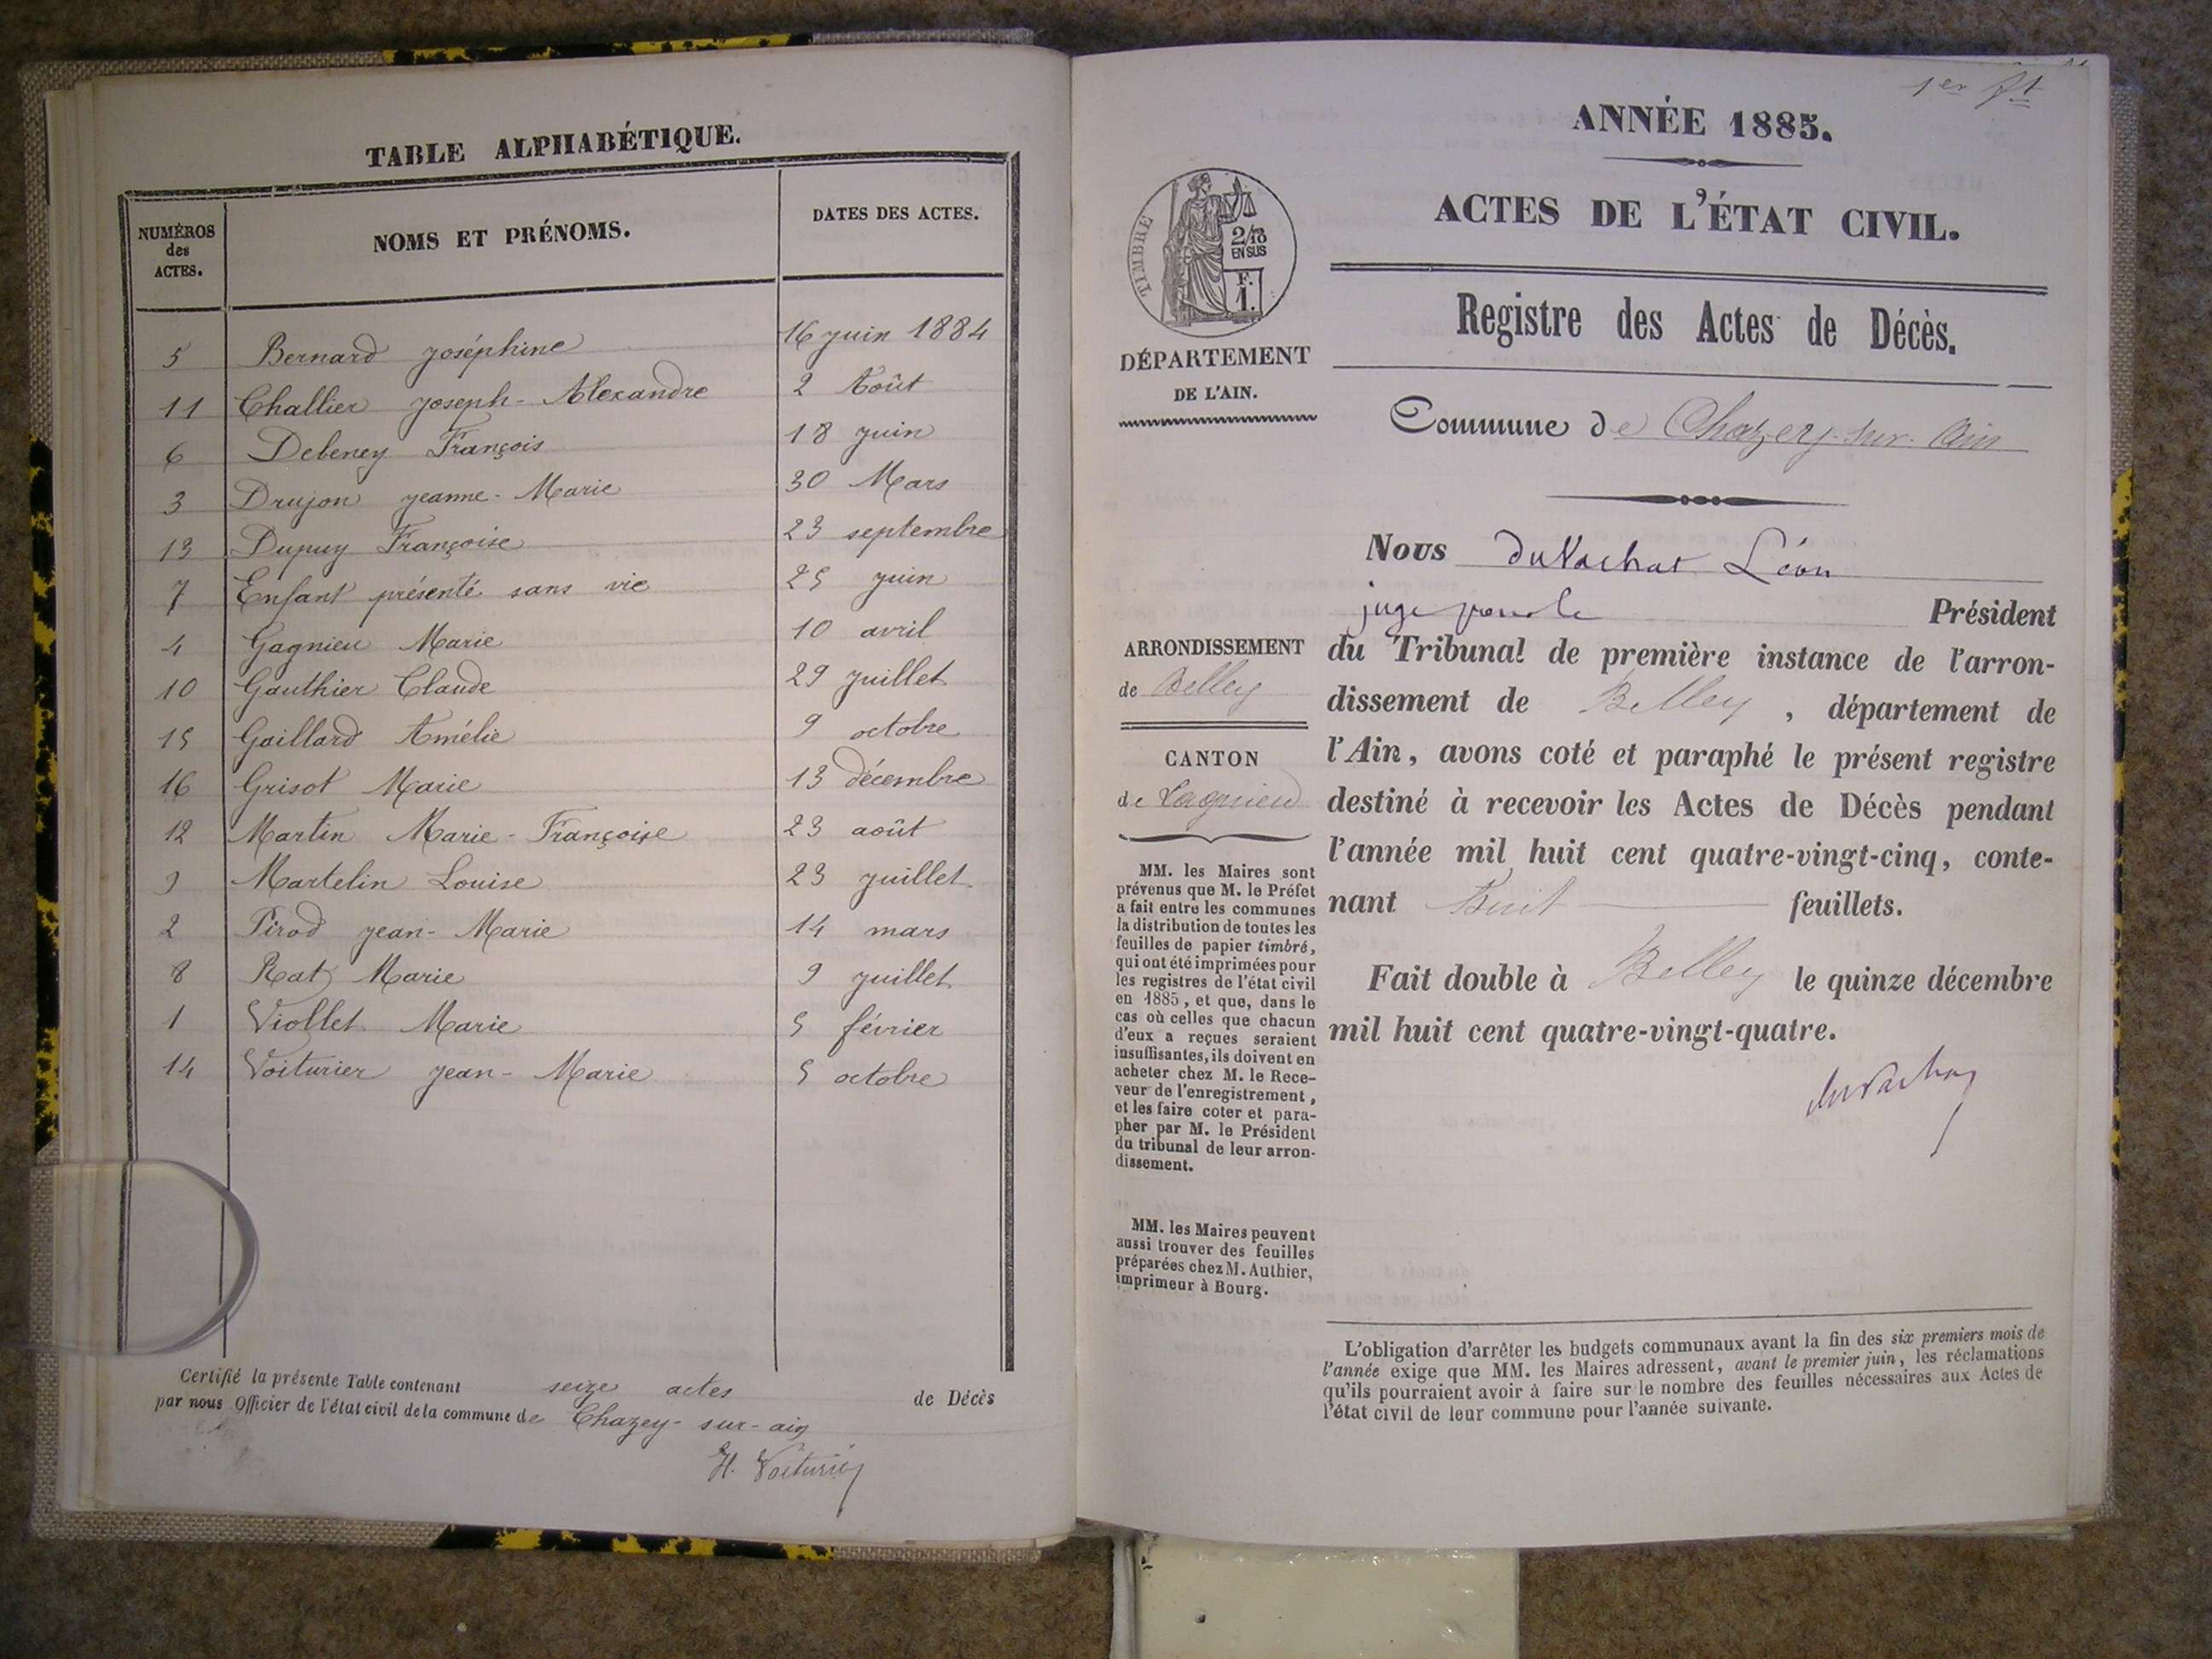 TABLE ALPHABÉTIQUE.
NUMÉROS des ACTES. NOMS ET PRÉNOMS. DATES DES ACTES.
5 Bernard joséphine 16 juin 1884
11 Challier joseph-Alexandre 2 Août
6 Debeney François 18 juin
3 Drujon jeanne-Marie 30 Mars
13 Dupuy Françoise 23 septembre
7 Enfant présenté sans vie 25 juin
4 Gagnieu Marie 10 avril
10 Gauthier Claude 29 juillet
15 Gaillard Amélie 9 octobre
16 Grisot Marie 13 décembre
12 Martin Marie-Françoise 23 août
9 Martelin Louise 23 juillet
2 Pirod jean-Marie 14 mars
8 Rat Marie 9 juillet
1 Viollet Marie 5 février
14 Voiturier jean-Marie 5 octobre
Certifié la présente Table contenant seize actes de Décès
par nous Officier de l'état civil de la commune de Chazey-sur-ain
H. Voiturier
1er
ANNÉE 1885.
ACTES DE L'ÉTAT CIVIL.
TIMBRE
2/10
EN SUS
F.
1.
DÉPARTEMENT
DE L'AIN.
Registre des Actes de Décès.
Commune de Chazey-sur-Ain
Nous duVachat Léon
juge pour le Président
du Tribunal de première instance de l'arron-
dissement de Belley, département de
l'Ain, avons coté et paraphé le présent registre
destiné à recevoir les Actes de Décès pendant
l'année mil huit cent quatre-vingt-cinq, conte-
nant huit feuillets.
Fait double à Belley le quinze décembre
mil huit cent quatre-vingt-quatre.
duVachat
ARRONDISSEMENT
de Belley
CANTON
de Lagnieu
MM. les Maires sont
prévenus que M. le Préfet
a fait entre les communes
la distribution de toutes les
feuilles de papier timbré,
qui ont été imprimées pour
les registres de l'état civil
en 1885, et que, dans le
cas où celles que chacun
d'eux a reçues seraient
insuffisantes, ils doivent en
acheter chez M. le Rece-
veur de l'enregistrement,
et les faire coter et para-
pher par M. le Président
du tribunal de leur arron-
dissement.
MM. les Maires peuvent
aussi trouver des feuilles
préparées chez M. Authier,
imprimeur à Bourg.
L'obligation d'arrêter les budgets communaux avant la fin des six premiers mois de
l'année exige que MM. les Maires adressent, avant le premier juin, les réclamations
qu'ils pourraient avoir à faire sur le nombre des feuilles nécessaires aux Actes de
l'état civil de leur commune pour l'année suivante.